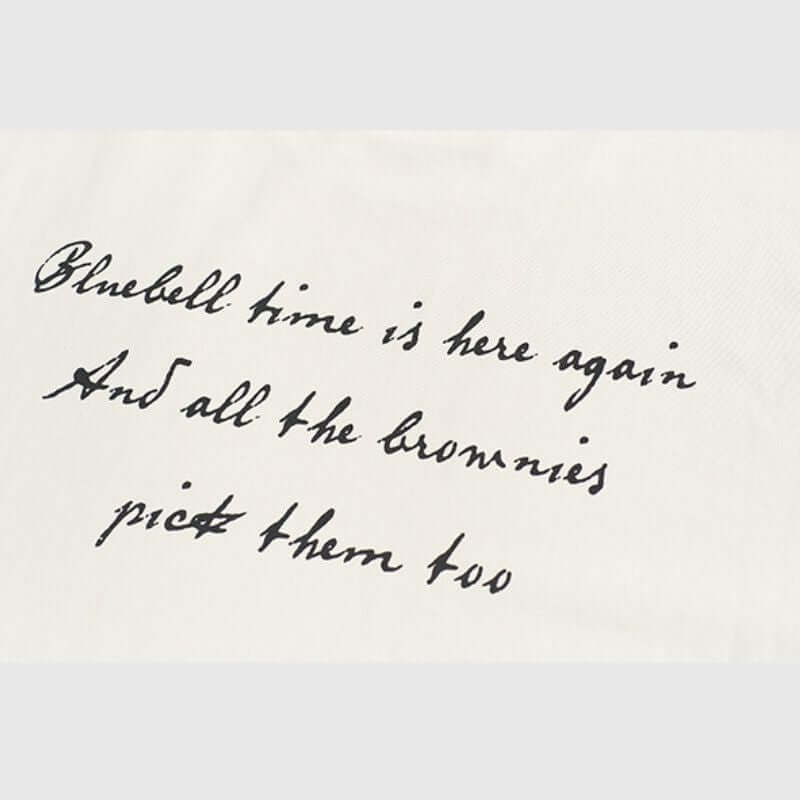 Bluebell time is here again
And all the brownies
pick them too